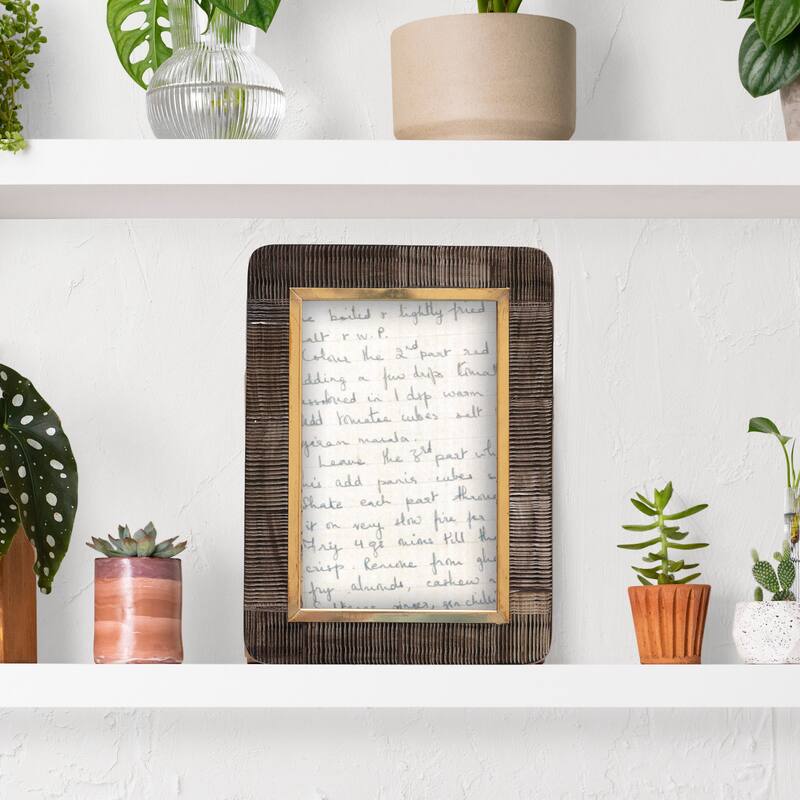 e boiled & lightly fried
alt & w.P.
Colour the 2nd part red
dding a few drops tomat
issolved in 1 dsp warm
add tomatoe cubes salt
garam masala.
Leave the 3rd part whi
his add panir cubes s
Shake each part throug
it on very slow fire for
Fry 4 gs mins till the
crisp. Remove from ghe
fry almonds, cashew n
ginger, gn. chilli